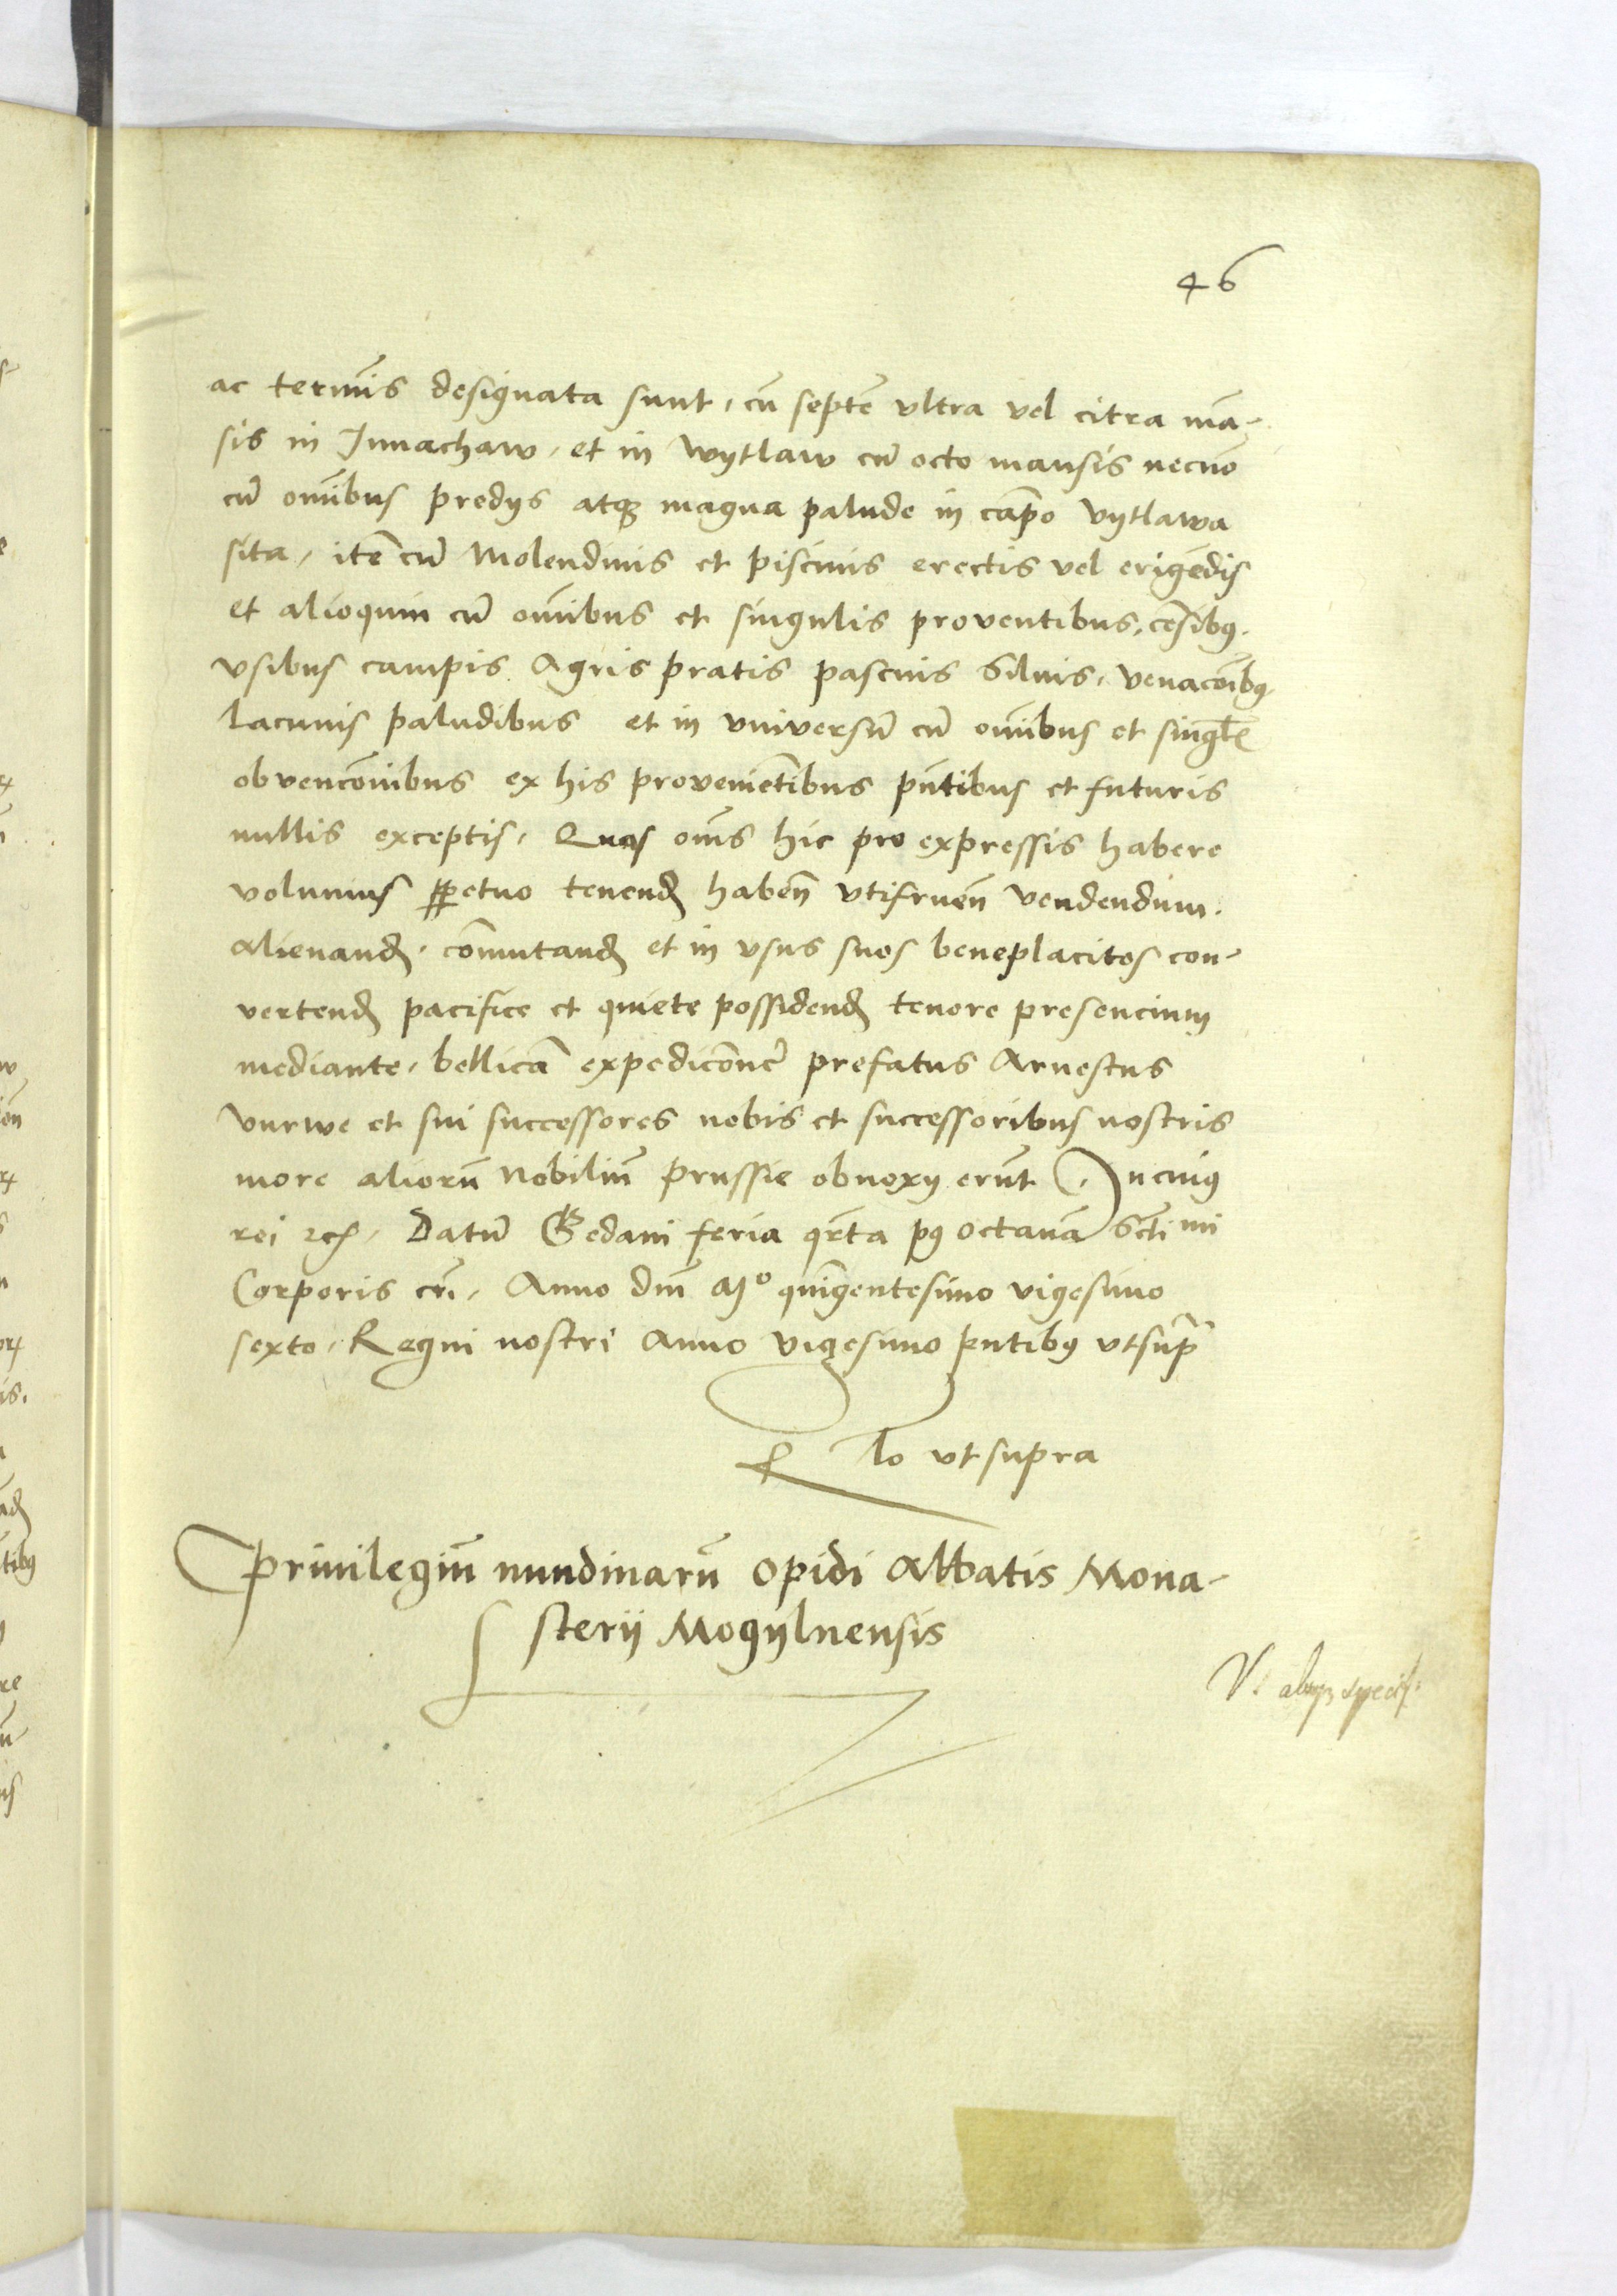 46
ac termĩs designata sunt, cũ septẽ vltra vel citra mã-
sis in Jnnachaw, et in wytlaw cũ octo mansis necno
cũ oĩnibus predijs atqꝫ magna palude in cãpo vijtlawa
sita, itẽ cũ Molendinis et piscinis erectis vel erigẽdis
et alioquin cũ oĩnibus et singulis proventibus, cẽsibꝯ.
vsibus campis Agris pratis pascuis Siluis, venacõibꝯ
lacunis paludibus et in vniversũ cũ oĩnibus et singl̃
obvencõnibus ex his provenietĩbus pñtibus et futuris
nullis exceptis, Quas oĩns hic pro expressis habere
volumus ꝑpetuo tenend habeñ vtifrueñ vendendum.
alienand, com̃utand et in vsus suos beneplacitos con-
vertend pacifice et quiete possidend tenore presencium
mediante, bellicã expedicõnẽ prefatus Arnestus
vnrwe et sui successores nobis et successoribus nostris
more aliorũ Nobiliũ prussie obnoxij erũt Jn cuiꝯ
rei ꝛcꝭ, Datũ Gedani feria qrta pꝯ octavã Scti mi
Corporis crĩ, Anno dñi Mº quĩngentesimo vigesimo
sexto, Regni nostri Anno vigesimo pñtibꝯ vtsupr̃
Rlo vtsupra
Priuilegiũ nundinarũ opidi Abbatis Mona-
sterij Mogijlnensis
V.